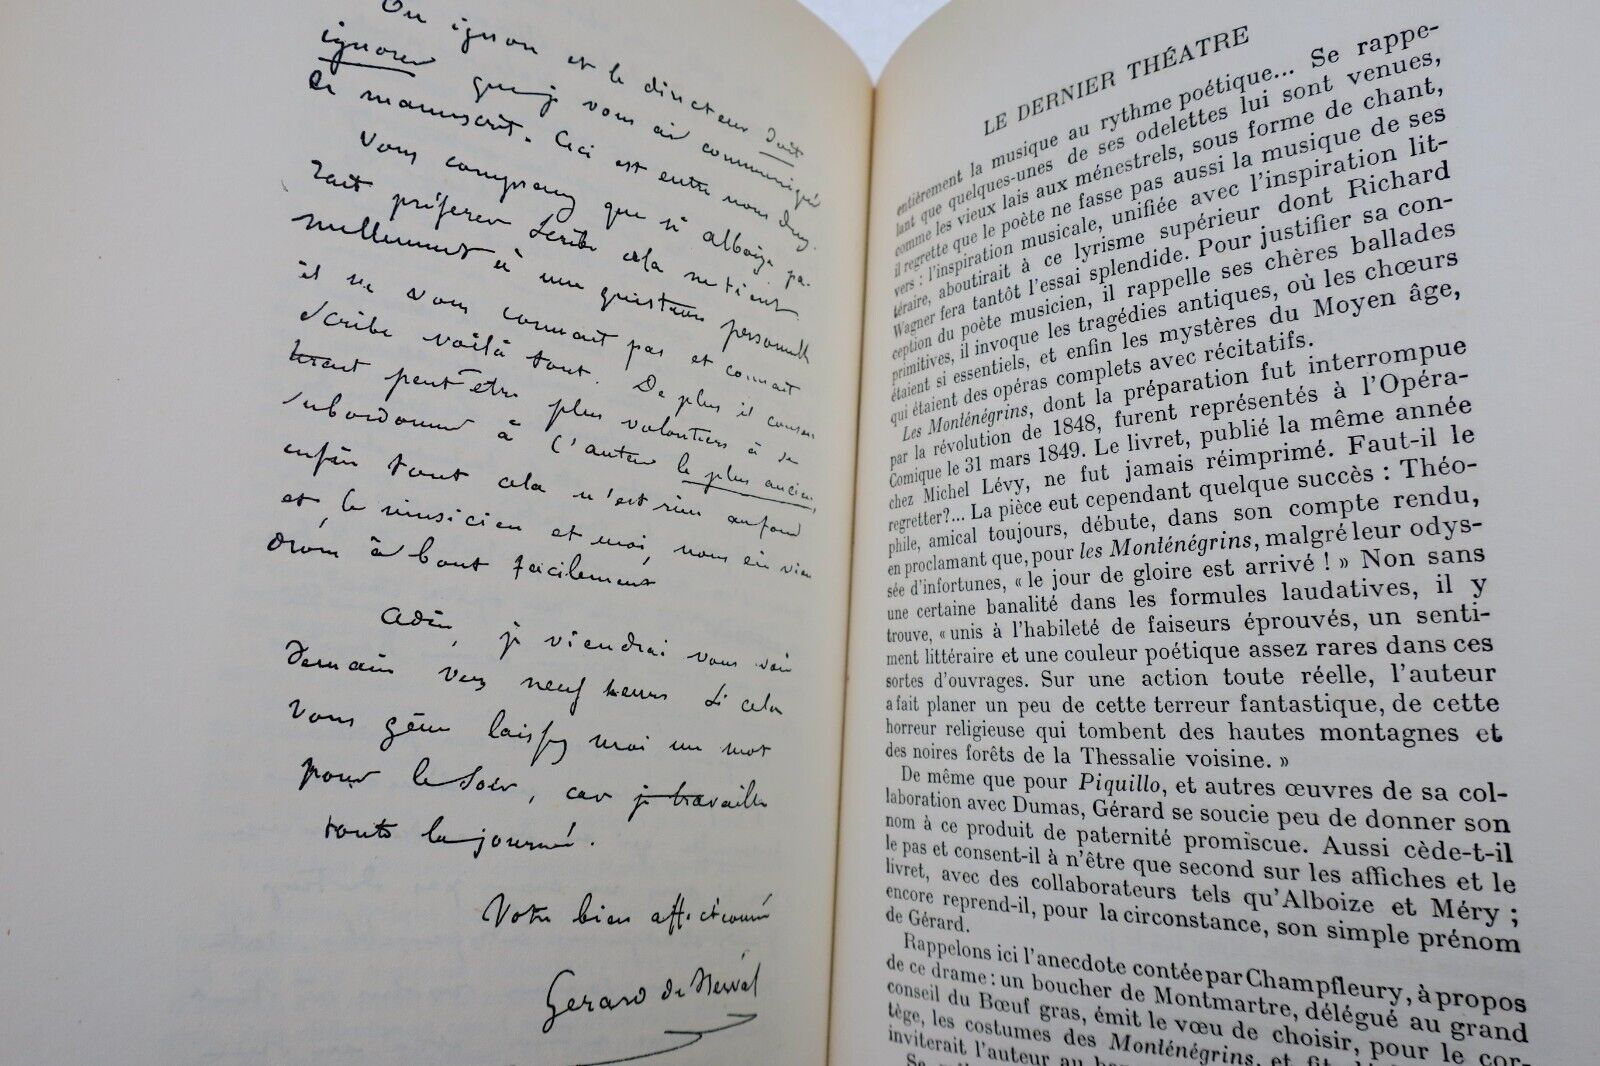 On ignore et le directeur doit
ignorer que je vous ai communiqué
ce manuscrit. Ceci est entre nous deux.
Vous comprenez que si alboize pa-
rait préférer Scribe cela ne tient
nullement à une question personnelle
il ne vous connait pas et connait
Scribe voilà tout. De plus il consen
tirait peut être plus volontiers à se
subordonner à l'auteur le plus ancien,
enfin tout cela n'est rien au fond
et le musicien et moi, nous en vien
drons à bout facilement
adieu, je viendrai vous voir
demain vers neuf heures si cela
vous gêne laissez moi un mot
pour le soir, car je travaille
toute la journée.
Votre bien affectionné
Gérard de Nerval
LE DERNIER THÉATRE
entièrement la musique au rythme poétique... Se rappe-
lant que quelques-unes de ses odelettes lui sont venues,
comme les vieux lais aux ménestrels, sous forme de chant,
il regrette que le poète ne fasse pas aussi la musique de ses
vers : l'inspiration musicale, unifiée avec l'inspiration lit-
téraire, aboutirait à ce lyrisme supérieur dont Richard
Wagner fera tantôt l'essai splendide. Pour justifier sa con-
ception du poète musicien, il rappelle ses chères ballades
primitives, il invoque les tragédies antiques, où les chœurs
étaient si essentiels, et enfin les mystères du Moyen âge,
qui étaient des opéras complets avec récitatifs.
Les Monténégrins, dont la préparation fut interrompue
par la révolution de 1848, furent représentés à l'Opéra-
Comique le 31 mars 1849. Le livret, publié la même année
chez Michel Lévy, ne fut jamais réimprimé. Faut-il le
regretter?... La pièce eut cependant quelque succès : Théo-
phile, amical toujours, débute, dans son compte rendu,
en proclamant que, pour les Monténégrins, malgré leur odys-
sée d'infortunes, « le jour de gloire est arrivé ! » Non sans
une certaine banalité dans les formules laudatives, il y
trouve, « unis à l'habileté de faiseurs éprouvés, un senti-
ment littéraire et une couleur poétique assez rares dans ces
sortes d'ouvrages. Sur une action toute réelle, l'auteur
a fait planer un peu de cette terreur fantastique, de cette
horreur religieuse qui tombent des hautes montagnes et
des noires forêts de la Thessalie voisine. »
De même que pour Piquillo, et autres œuvres de sa col-
laboration avec Dumas, Gérard se soucie peu de donner son
nom à ce produit de paternité promiscue. Aussi cède-t-il
le pas et consent-il à n'être que second sur les affiches et le
livret, avec des collaborateurs tels qu'Alboize et Méry ;
encore reprend-il, pour la circonstance, son simple prénom
de Gérard.
Rappelons ici l'anecdote contée par Champfleury, à propos
de ce drame : un boucher de Montmartre, délégué au grand
conseil du Bœuf gras, émit le vœu de choisir, pour le cor-
tège, les costumes des Monténégrins, et fit
inviterait l'auteur au